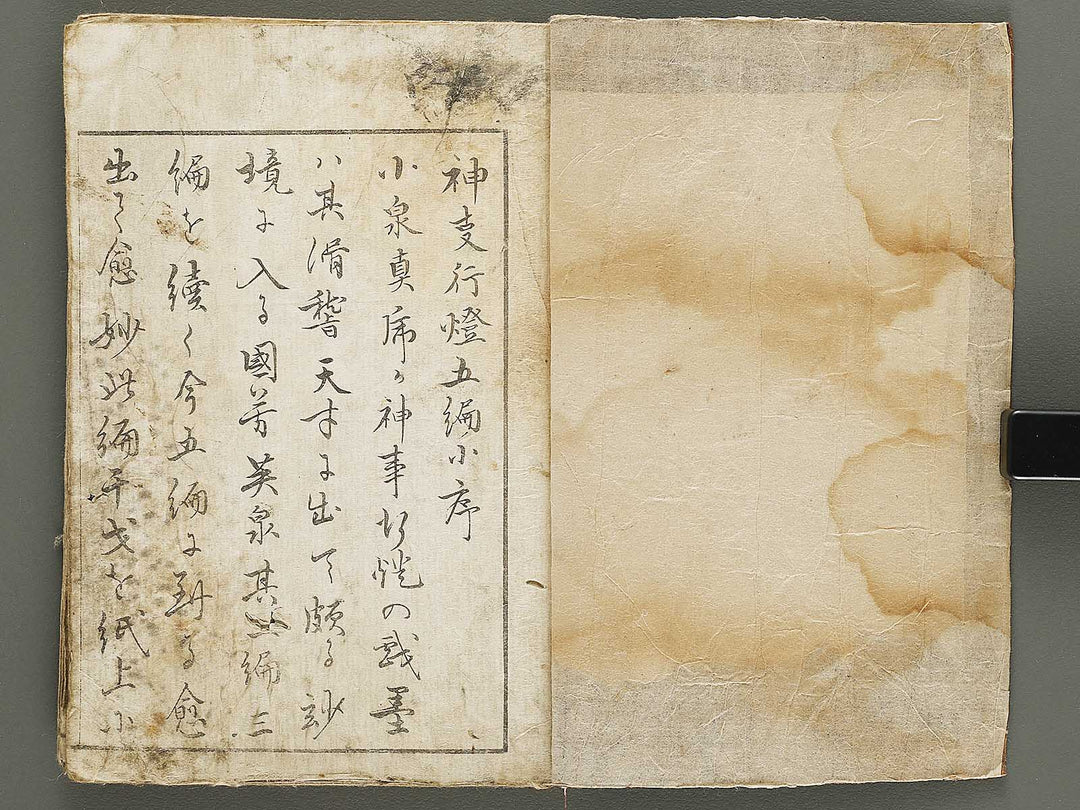 神叓行燈五編小序
小泉真席ヶ神事行燈の戯墨
ハ其滑稽天才に出て頗る妙
境に入る國芳英泉其二編三
編を續く今五編に到る愈
出て愈妙此編干戈を紙上小